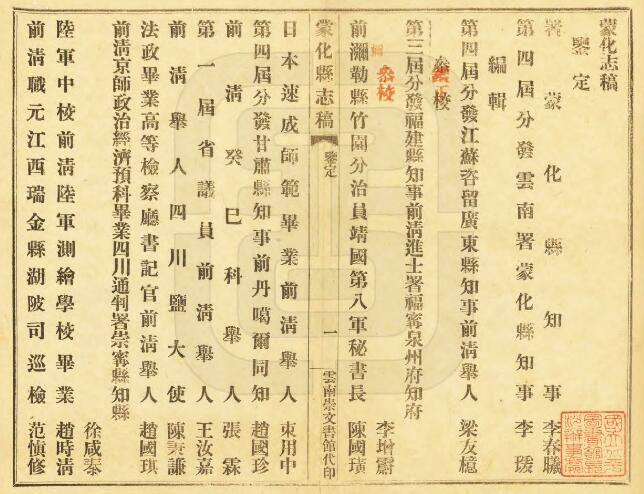 蒙化志稿
鑒定
署蒙化縣知事李春曦
第四屆分發雲南署蒙化縣知事李瑗
編輯
第四屆分發江蘇咨留廣東縣知事前清舉人梁友檍
參校
第三屆分發福建縣知事前清進士署福寗泉州府知府李增霨
參校
前瀰勒縣竹園分治員靖國第八軍秘書長陳國璜
蒙化縣志稿 鑒定 一 雲南崇文書館代印
日本速成師範畢業前清舉人束用中
第四屆分發甘肅縣知事前丹噶爾同知趙國珍
前清癸巳科舉人張霖
第一屆省議員前清舉人王汝嘉
前清舉人四川鹽大使陳秉謙
法政畢業高等檢察廳書記官前清舉人趙國琪
前清京師政治經濟預科畢業四川通判署崇寗縣知縣徐咸泰
陸軍中校前清陸軍測繪學校畢業趙時清
前清職元江西瑞金縣湖陂司巡檢范慎修